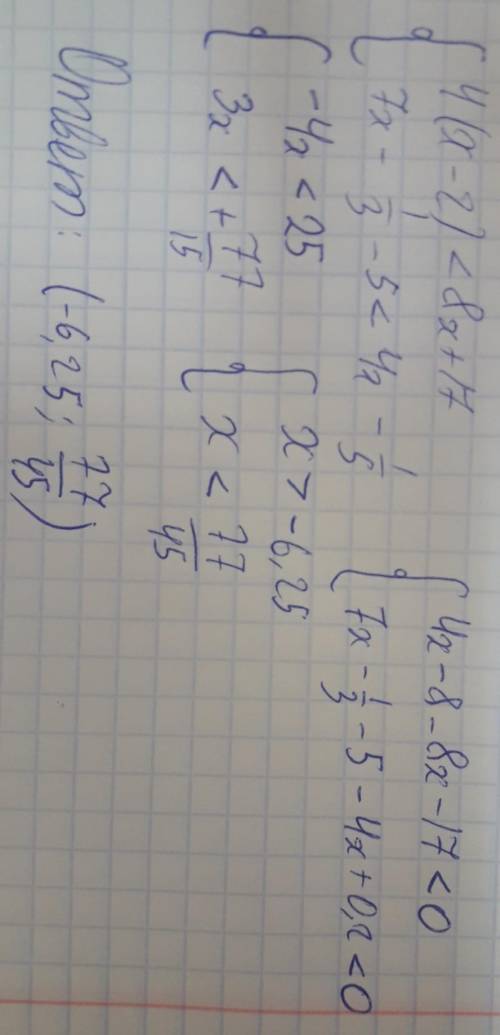 { 4(x - 2) < 8x + 17
{ 7x - 1/3 - 5 < 4x - 1/5
{ 4x - 8 - 8x - 17 < 0
{ 7x - 1/3 - 5 - 4x + 0,2 < 0
{ -4x < 25
{ 3x < + 77/15
{ x > -6,25
{ x < 77/45
Ответ: (-6,25; 77/45)